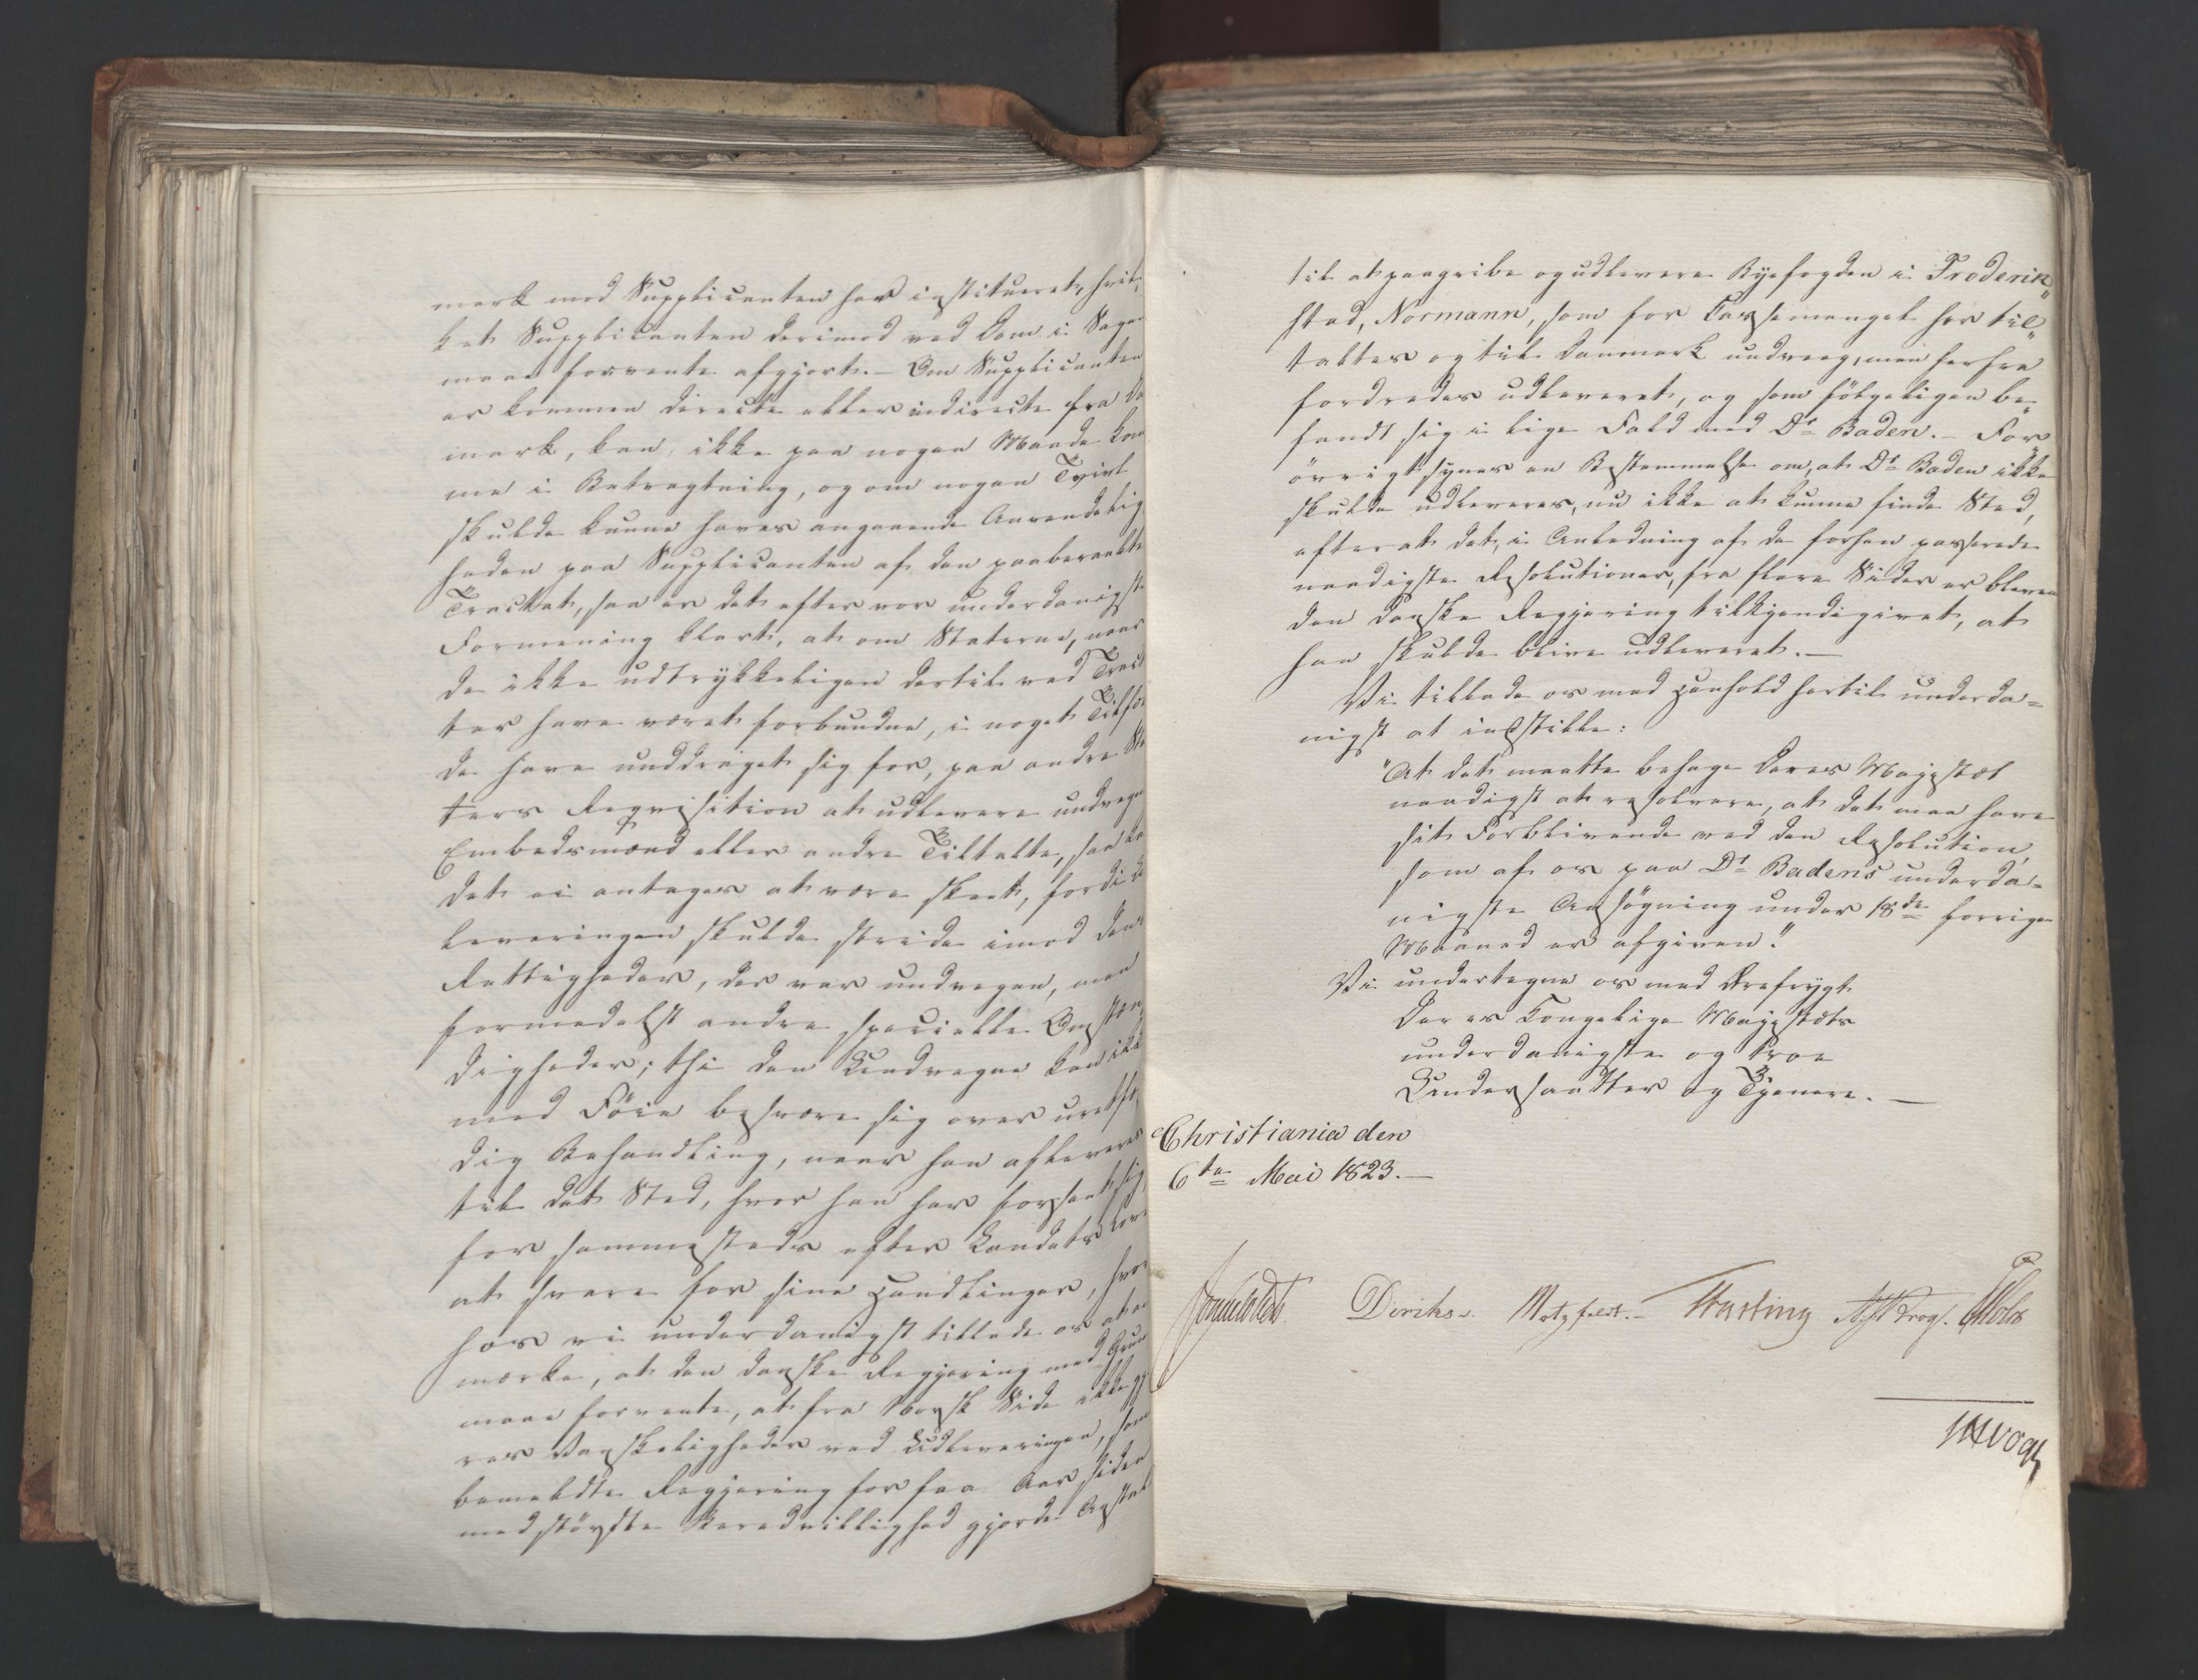 mark mod Supplicanten har institueret, hvil„
ket Supplicanten derimod ved Dom i Sagen
maae forvente afgjort. – Om Supplicanten
er kommen directe eller indirecte fra Da
mark, kan ikke paa nogen Maade kom
me i Betragtning, og om nogen Tvivl
skulde kunne haves angaaende Anvendelig
heden paa Supplicanten af den paaberaabte
Tractat, saa er det efter vor underdanigste
Formening klart, at om Staterne, naar
de ikke udtrykkeligen dertil ved Tract
ter have været forbundne, i noget Tilfæ
de have unddraget sig for, paa andre Sta
ters Reqvisition at udlevere undvegne
Embedsmænd eller andre Tiltalte, saa kan
det ei antages at være skeet, fordi Ud
leveringen skulde stride imod dens
Rettigheder, der var undvegen, men
formedelst andre specielle Omstæn
digheder; thi den Undvegne kan ikke
med Föie besvære sig over uretfær
dig Behandling, naar han afleveres
til det Sted, hvor han har forseet sig,
for sammesteds efter Landets Love
at svare for sine Handlinger, hvor
hos vi underdanigst tillade os at be
mærke, at den danske Regjering med Grund
maae forvente, at fra Norsk Side ikke gjö
res Vanskeligheder ved Udleveringen, som
bemeldte Regjering for faa Aar siden
med störste Beredvillighed gjorde Anstalt
til at paagribe og udlevere Byefogden i Frederik„
stad, Normann, som for Cassemangel her til„
taltes og til Danmark undveeg, men herfra
fordredes udleveret, og som fölgeligen be„
fandt sig i lige Fald med Dr Baden. – For„
övrigt synes en Bestemmelse om, at Dr Baden ikke
skulde udleveres, nu ikke at kunne finde Sted,
efterat det, i Anledning af de forhen passerede
naadigste Resolutioner, fra flere Sider er bleven
den danske Regjering tilkjendegivet, at
han skulde blive udleveret. –
Vi tillade os med Henhold hertil underda=
nigst at indstille:
"At det maatte behage Deres Majestæt
naadigst at resolvere, at det maa have
sit Forblivende ved den Resolution,
som af os paa Dr Badens underda=
nigste Ansögning under 18de forrige
Maaned er afgiven."
Vi undertegne os med Ærefrygt
Deres Kongelige Majestæts
underdanigste og troe
Undersaatter og Tjenere. –
Christiania den
6te Mai 1823. –
Diriks. Motzfeldt. – Fasting Krog. Holst
JHVogt